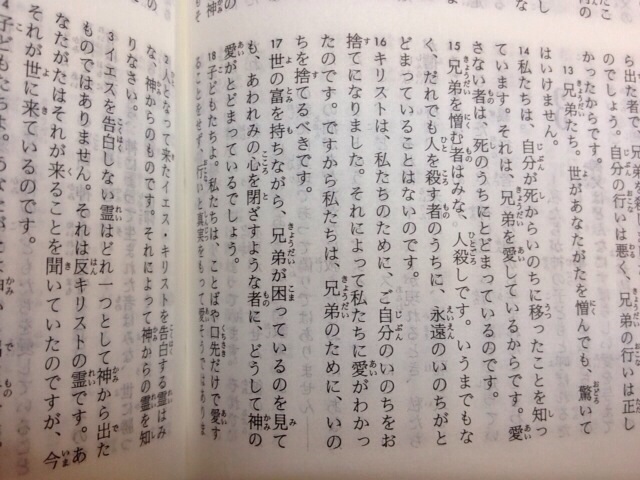 ら出た者で、兄弟
自分の行いは悪く、兄弟の行いは正し
かったからです。
13 兄弟たち。世があなたがたを憎んでも、驚いて
はいけません。
14 私たちは、自分が死からいのちに移ったことを知っ
ています。それは、兄弟を愛しているからです。愛
さない者は、死のうちにとどまっているのです。
15 兄弟を憎む者はみな、人殺しです。いうまでもな
く、だれでも人を殺す者のうちに、永遠のいのちがと
どまっていることはないのです。
16 キリストは、私たちのために、ご自分のいのちをお
捨てになりました。それによって私たちに愛がわかっ
たのです。ですから私たちは、兄弟のために、いの
ちを捨てるべきです。
17 世の富を持ちながら、兄弟が困っているのを見て
も、あわれみの心を閉ざすような者に、どうして神の
愛がとどまっているでしょう。
18 子どもたちよ。私たちは、ことばや口先だけで愛す
ることをせず、行いと真実をもって愛そうではありま
2 人となって来たイエス・キリストを告白する霊はみ
な、神からのものです。それによって神からの霊を知
りなさい。
3 イエスを告白しない霊はどれ一つとして神から出た
ものではありません。それは反キリストの霊です。あ
なたがたはそれが来ることを聞いていたのですが、今
それが世に来ているのです。
4 子どもたちよ。あなたがたは神